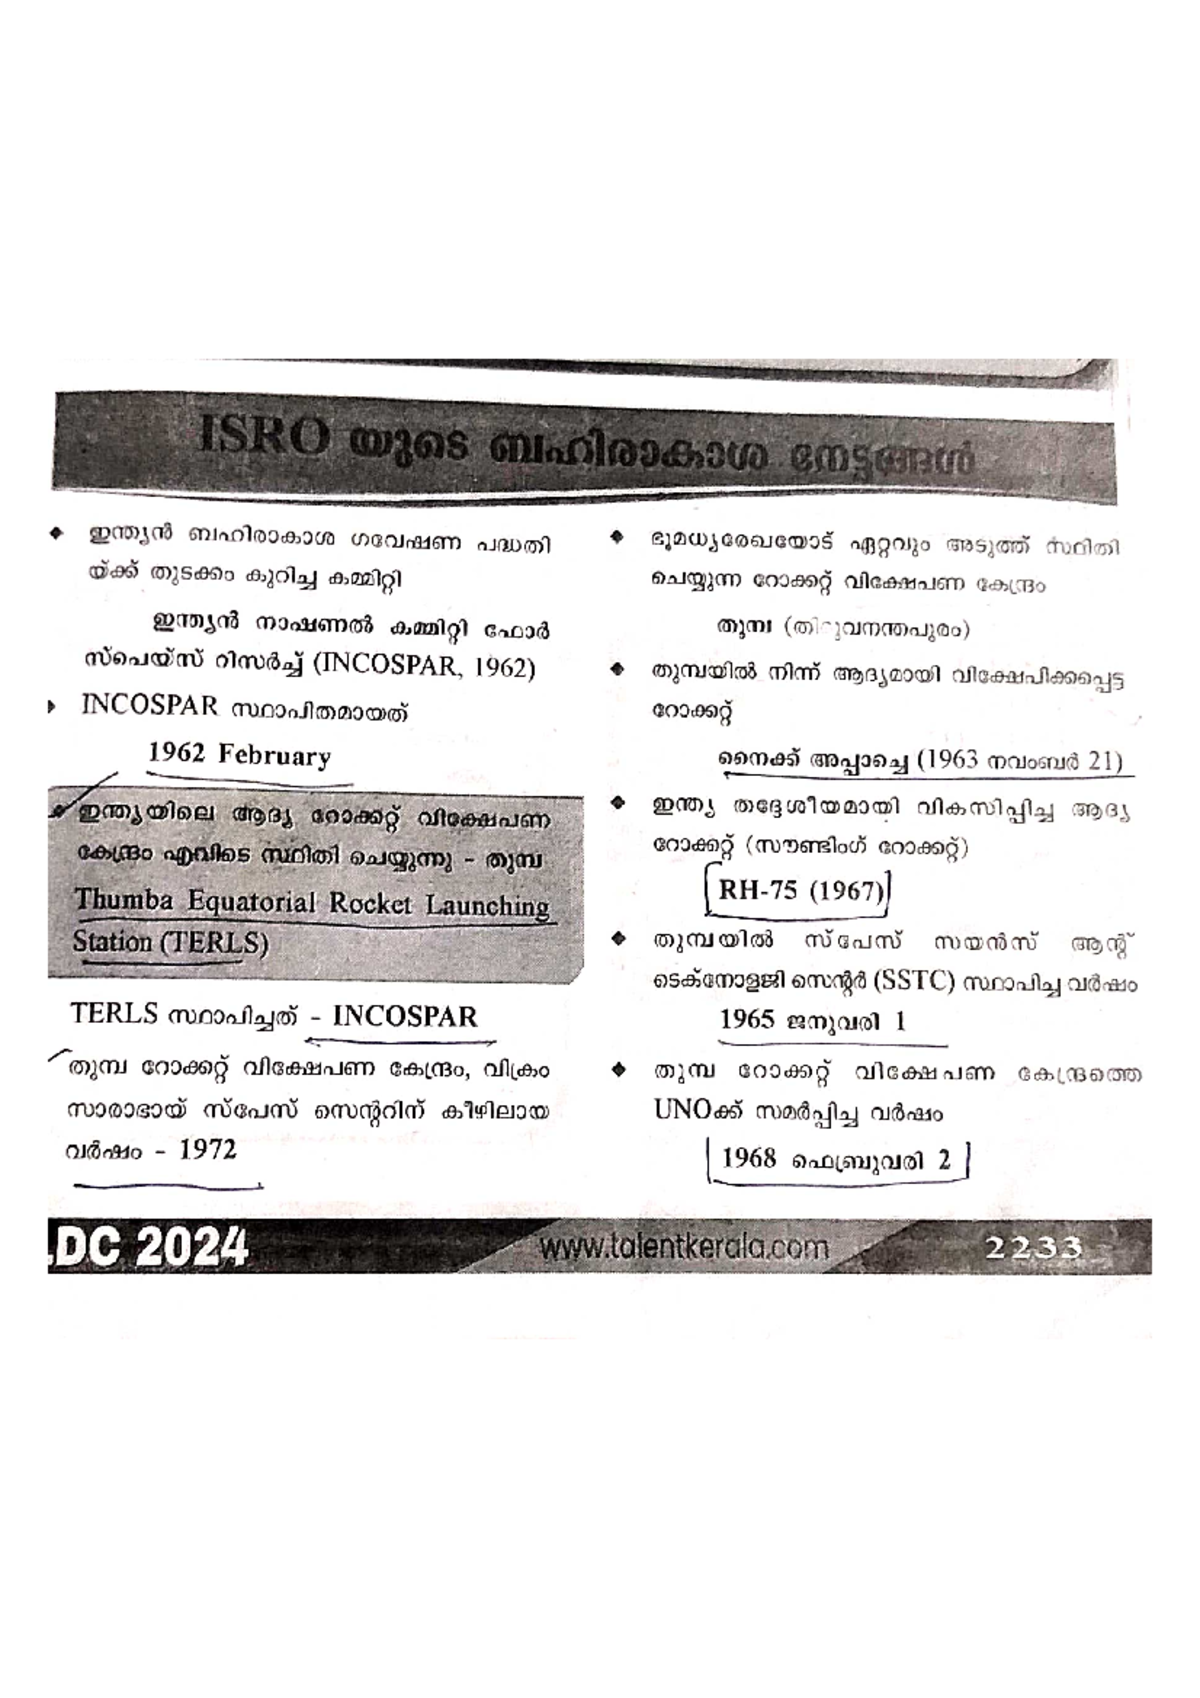 ISRO യുടെ ബഹിരാകാശ നേട്ടങ്ങൾ
ഇന്ത്യൻ ബഹിരാകാശ ഗവേഷണ പദ്ധതി
യ്ക്ക് തുടക്കം കുറിച്ച കമ്മിറ്റി
ഇന്ത്യൻ നാഷണൽ കമ്മിറ്റി ഫോർ
സ്പെയ്സ് റിസർച്ച് (INCOSPAR, 1962)
INCOSPAR സ്ഥാപിതമായത്
1962 February
ഇന്ത്യയിലെ ആദ്യ റോക്കറ്റ് വിക്ഷേപണ
കേന്ദ്രം എവിടെ സ്ഥിതി ചെയ്യുന്നു - തുമ്പ
Thumba Equatorial Rocket Launching
Station (TERLS)
TERLS സ്ഥാപിച്ചത് - INCOSPAR
തുമ്പ റോക്കറ്റ് വിക്ഷേപണ കേന്ദ്രം, വിക്രം
സാരാഭായ് സ്പേസ് സെന്ററിന് കീഴിലായ
വർഷം - 1972
ഭൂമധ്യരേഖയോട് ഏറ്റവും അടുത്ത് സ്ഥിതി
ചെയ്യുന്ന റോക്കറ്റ് വിക്ഷേപണ കേന്ദ്രം
തുമ്പ (തിരുവനന്തപുരം)
തുമ്പയിൽ നിന്ന് ആദ്യമായി വിക്ഷേപിക്കപ്പെട്ട
റോക്കറ്റ്
നൈക്ക് അപ്പാച്ചെ (1963 നവംബർ 21)
ഇന്ത്യ തദ്ദേശീയമായി വികസിപ്പിച്ച ആദ്യ
റോക്കറ്റ് (സൗണ്ടിംഗ് റോക്കറ്റ്)
RH-75 (1967)
തുമ്പയിൽ സ്പേസ് സയൻസ് ആന്റ്
ടെക്നോളജി സെന്റർ (SSTC) സ്ഥാപിച്ച വർഷം
1965 ജനുവരി 1
തുമ്പ റോക്കറ്റ് വിക്ഷേപണ കേന്ദ്രത്തെ
UNOക്ക് സമർപ്പിച്ച വർഷം
1968 ഫെബ്രുവരി 2
.DC 2024 www.talentkerala.com 2233